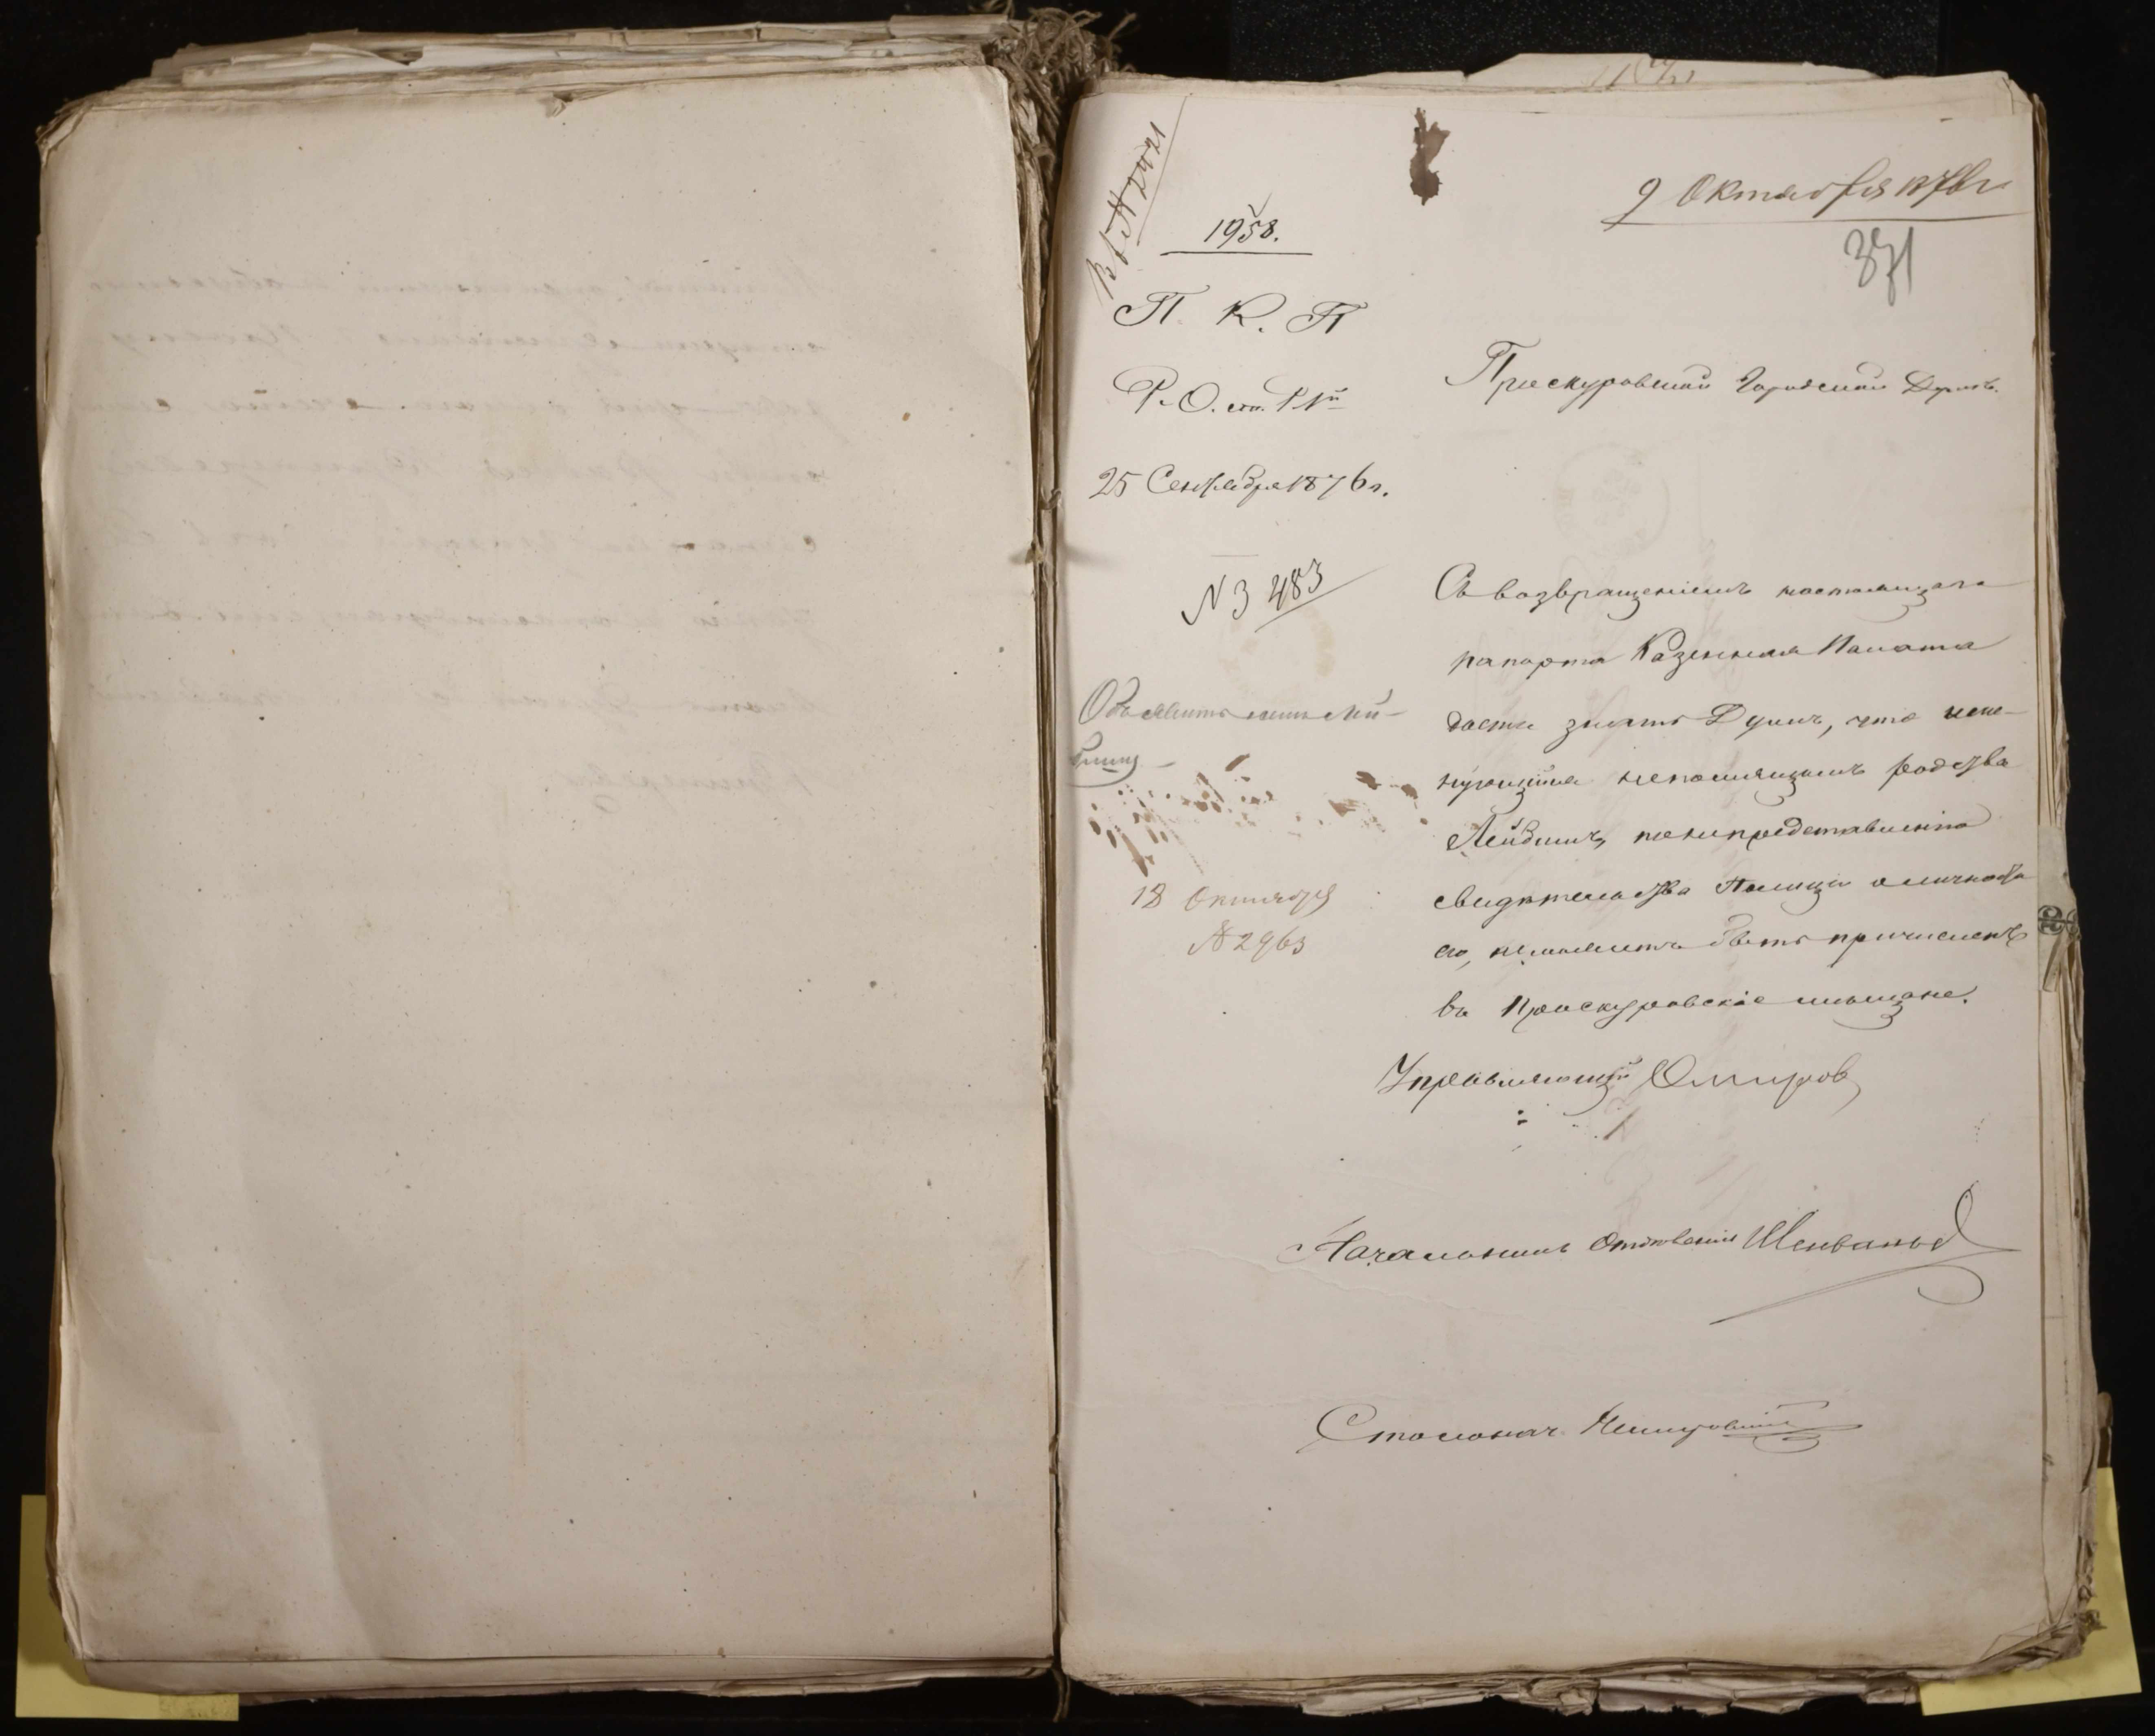 Вх. № 2421
9 Октября 1876 г.
1958.
371
П. К. П.
Проскуровской Городской Думѣ.
Р. О. ст. 1й
25 Сентября 1876 г.
№ 3483
Съ возвращеніемъ настоящаго
рапорта Казенная Палата
даетъ знать Думѣ, что име-
нующійся непомнящимъ родства
Лейбишъ, по непредставленію
свидѣтельства Полиціи о личности
его, не можетъ быть причисленъ
въ Проскуровскіе мѣщане.
Объявить
18 Октября
№ 2963
Управляющій
Начальникъ Отдѣленія
Столонач.